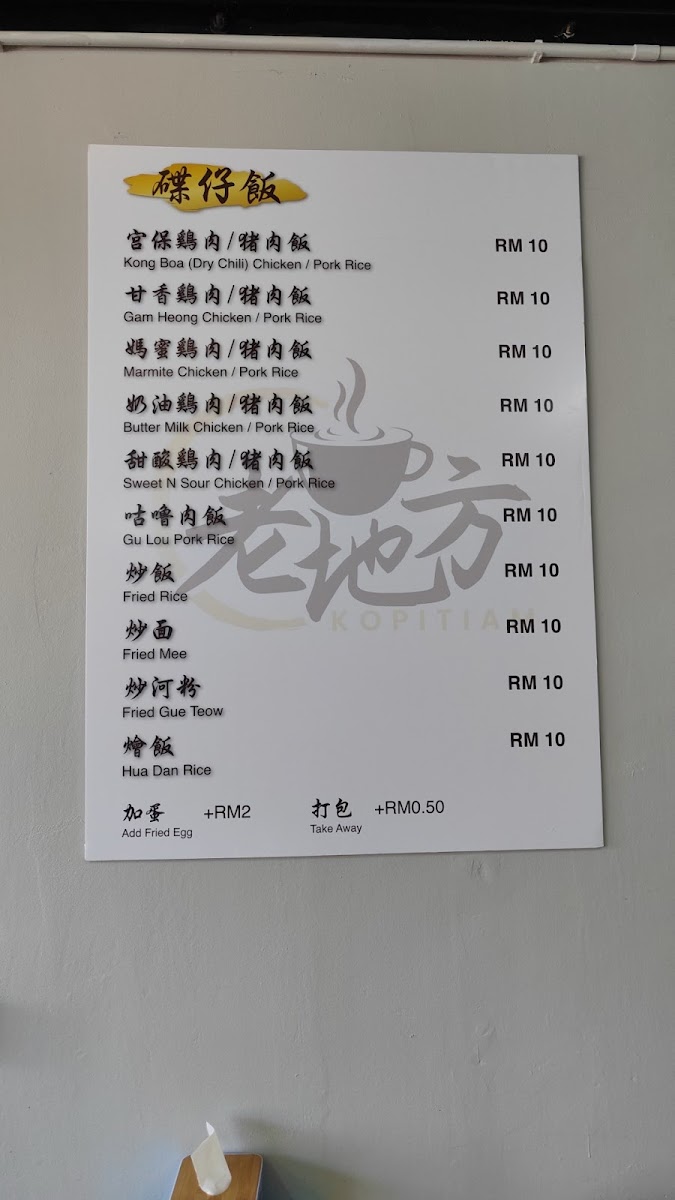 碟仔飯
宮保鷄肉/猪肉飯 RM 10
Kong Boa (Dry Chili) Chicken / Pork Rice
甘香鷄肉/猪肉飯 RM 10
Gam Heong Chicken / Pork Rice
媽蜜鷄肉/猪肉飯 RM 10
Marmite Chicken / Pork Rice
奶油鷄肉/猪肉飯 RM 10
Butter Milk Chicken / Pork Rice
甜酸鷄肉/猪肉飯 RM 10
Sweet N Sour Chicken / Pork Rice
咕嚕肉飯 RM 10
Gu Lou Pork Rice
老地方
KOPITIAM
炒飯 RM 10
Fried Rice
炒面 RM 10
Fried Mee
炒河粉 RM 10
Fried Gue Teow
燴飯 RM 10
Hua Dan Rice
加蛋 +RM2 打包 +RM0.50
Add Fried Egg Take Away